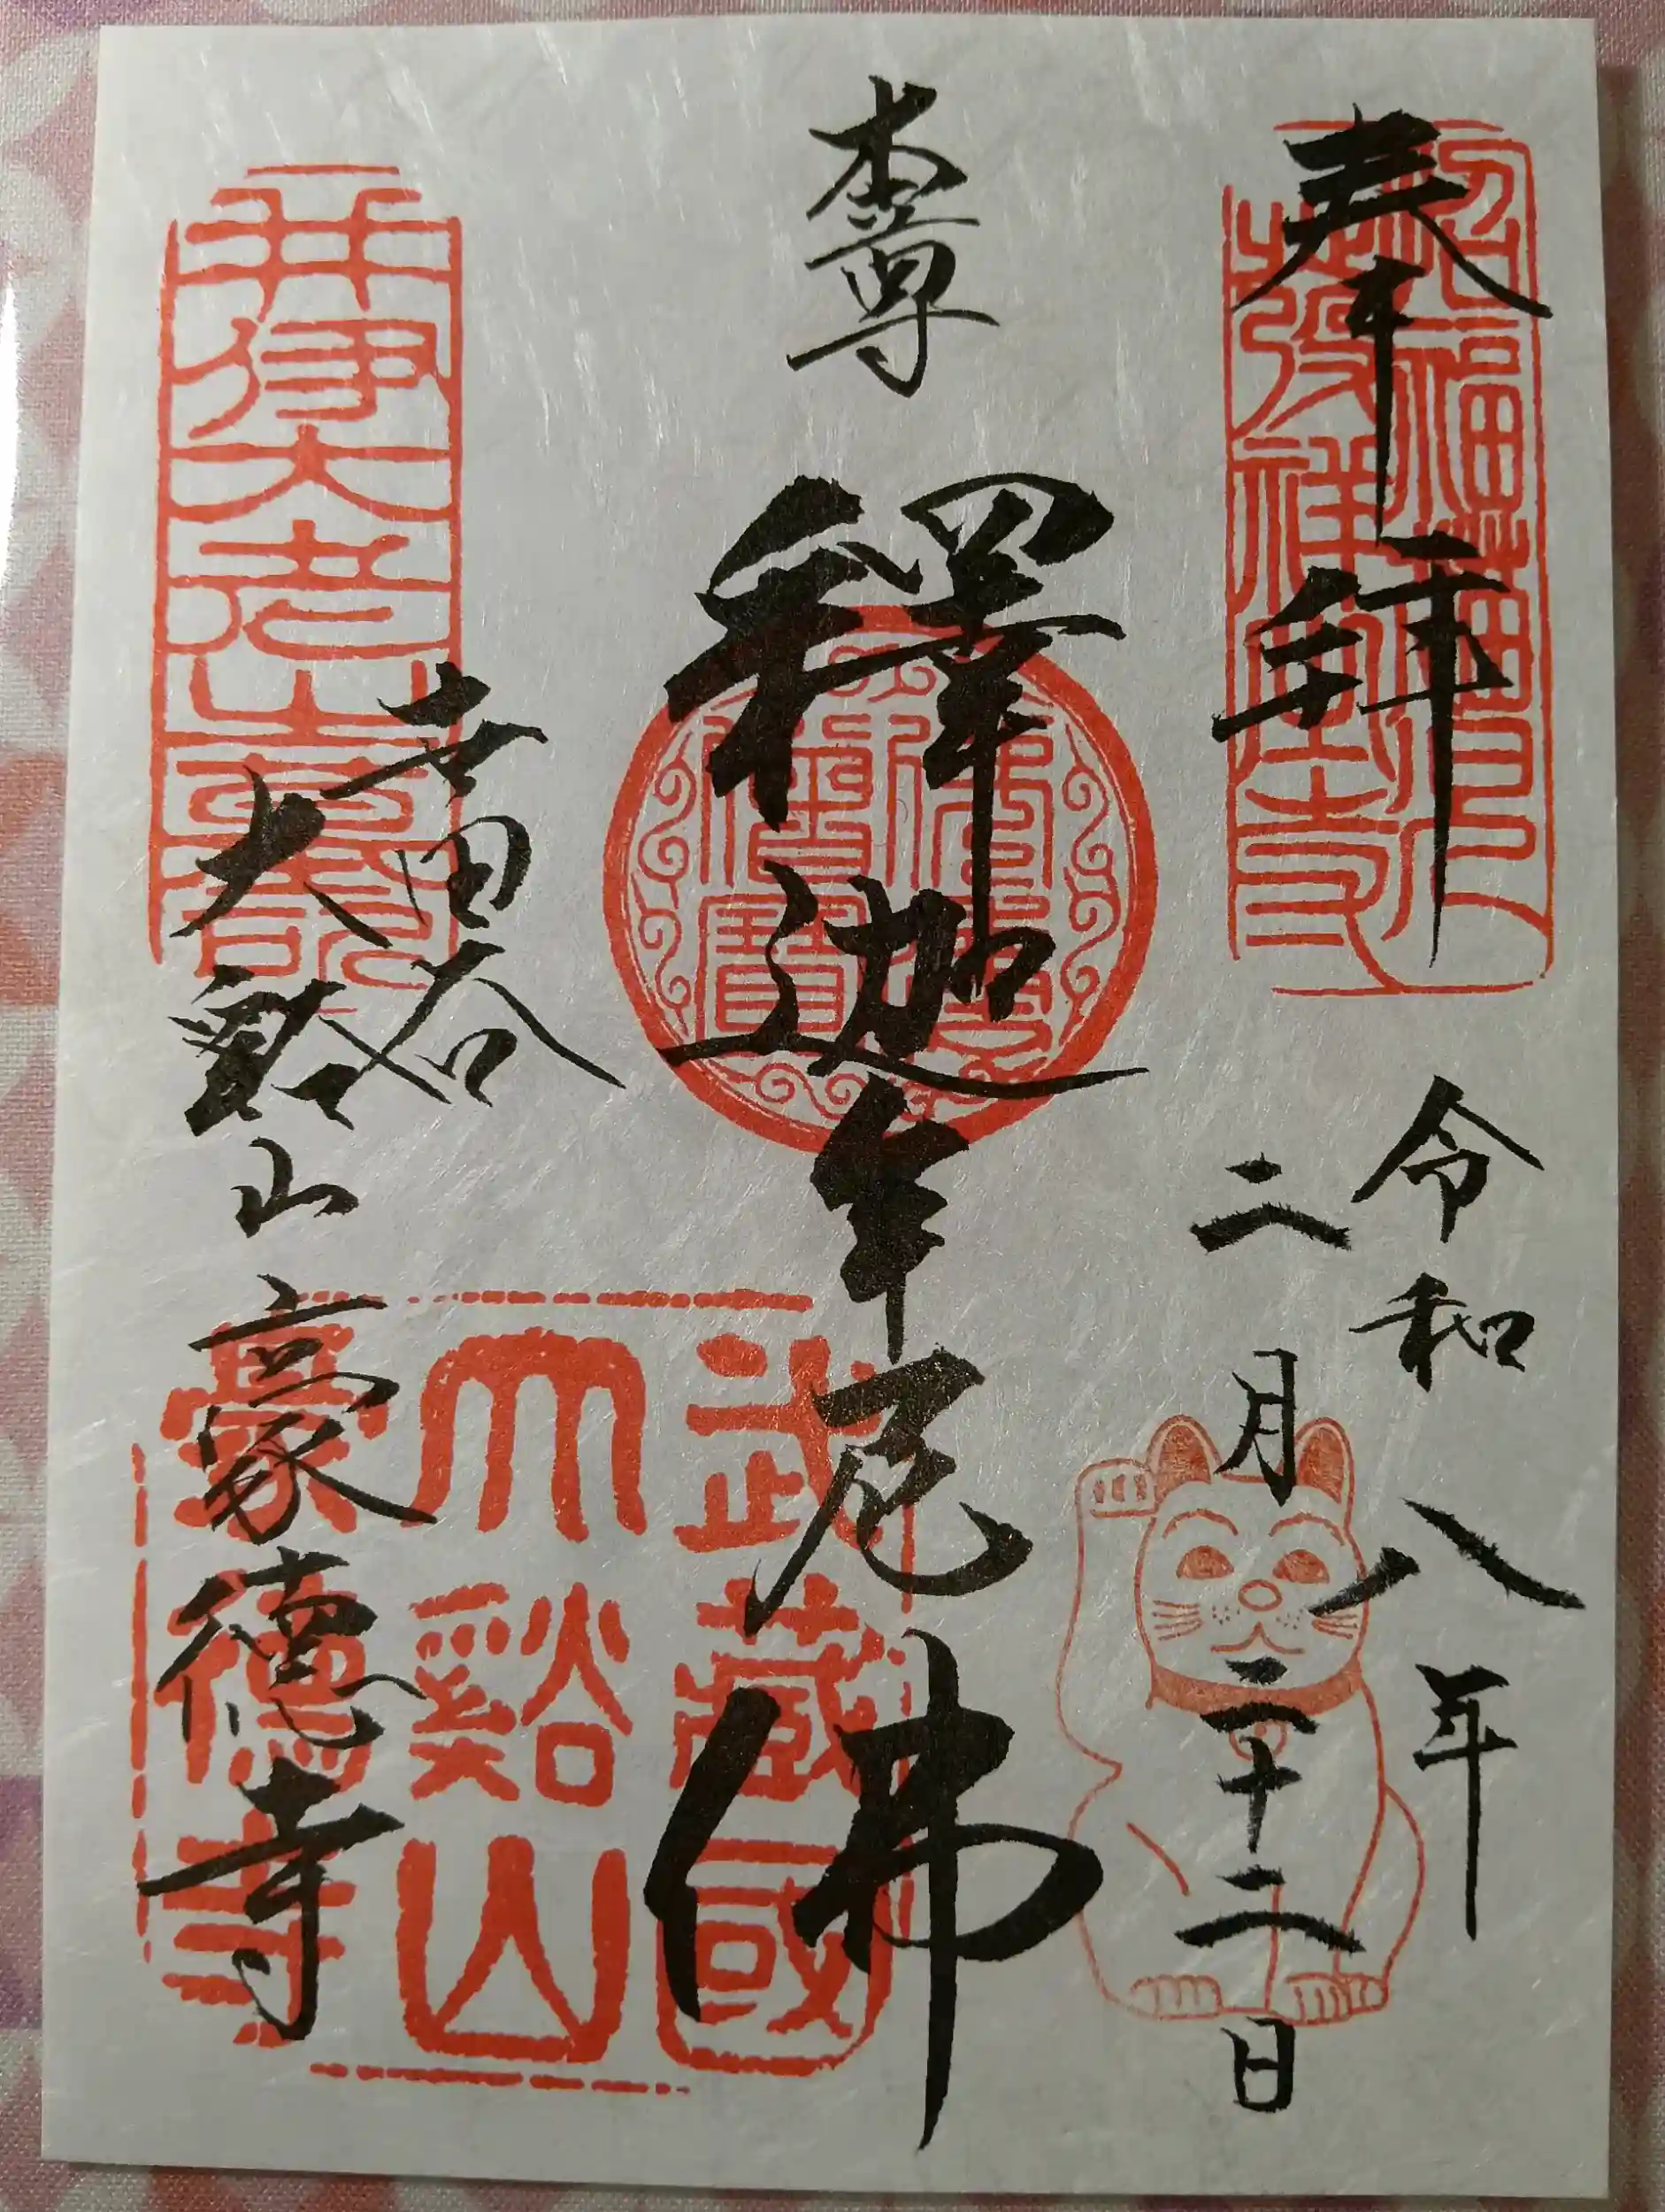 奉拝
招福猫児
令和八年
二月二十二日
本尊
釋迦牟尼佛
世田谷
大谿山豪徳寺
井伊大老
武藏國
大谿山
豪德寺